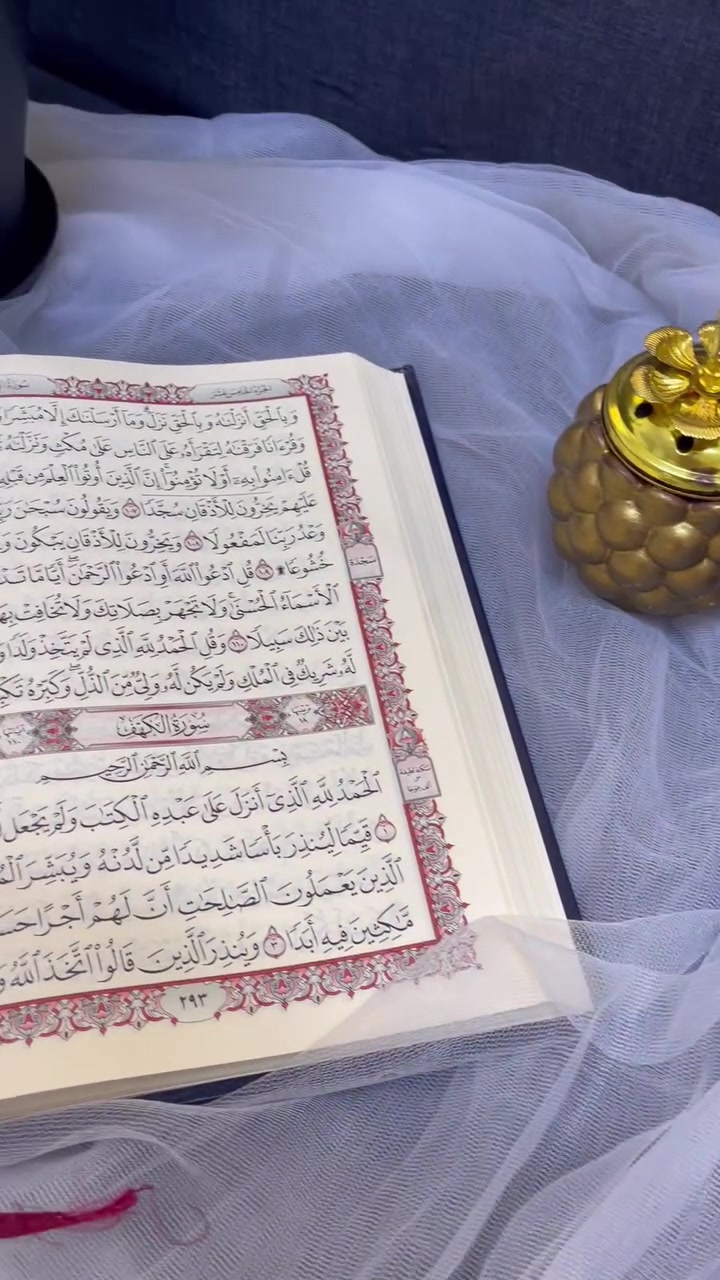 الجزء الخامس عشر
سورة
وَبِالْحَقِّ أَنزَلْنَٰهُ وَبِالْحَقِّ نَزَلَ وَمَا أَرْسَلْنَٰكَ إِلَّا مُبَشِّرًا
وَقُرْءَانًا فَرَقْنَٰهُ لِتَقْرَأَهُۥ عَلَى النَّاسِ عَلَىٰ مُكْثٍ وَنَزَّلْنَٰهُ
قُلْ ءَامِنُوا بِهِۦٓ أَوْ لَا تُؤْمِنُوٓا إِنَّ الَّذِينَ أُوتُوا الْعِلْمَ مِن قَبْلِهِ
عَلَيْهِمْ يَخِرُّونَ لِلْأَذْقَانِ سُجَّدًا ١٠٧ وَيَقُولُونَ سُبْحَٰنَ
وَعْدُ رَبِّنَا لَمَفْعُولًا ١٠٨ وَيَخِرُّونَ لِلْأَذْقَانِ يَبْكُونَ
خُشُوعًا ۩ ١٠٩ قُلِ ادْعُوا اللَّهَ أَوِ ادْعُوا الرَّحْمَٰنَ أَيًّا مَّا
سَجْدَة
الْأَسْمَآءُ الْحُسْنَىٰ وَلَا تَجْهَرْ بِصَلَاتِكَ وَلَا تُخَافِتْ بِهَا
بَيْنَ ذَٰلِكَ سَبِيلًا ١١٠ وَقُلِ الْحَمْدُ لِلَّهِ الَّذِى لَمْ يَتَّخِذْ وَلَدًا
لَّهُۥ شَرِيكٌ فِى الْمُلْكِ وَلَمْ يَكُن لَّهُۥ وَلِىٌّ مِّنَ الذُّلِّ وَكَبِّرْهُ
سُورَةُ الْكَهْفِ
بِسْمِ اللَّهِ الرَّحْمَٰنِ الرَّحِيمِ
الْحَمْدُ لِلَّهِ الَّذِىٓ أَنزَلَ عَلَىٰ عَبْدِهِ الْكِتَٰبَ وَلَمْ يَجْعَل
١ قَيِّمًا لِّيُنذِرَ بَأْسًا شَدِيدًا مِّن لَّدُنْهُ وَيُبَشِّرَ
الَّذِينَ يَعْمَلُونَ الصَّٰلِحَٰتِ أَنَّ لَهُمْ أَجْرًا
مَّٰكِثِينَ فِيهِ أَبَدًا ٣ وَيُنذِرَ الَّذِينَ قَالُوا اتَّخَذَ اللَّهُ
٢٩٣